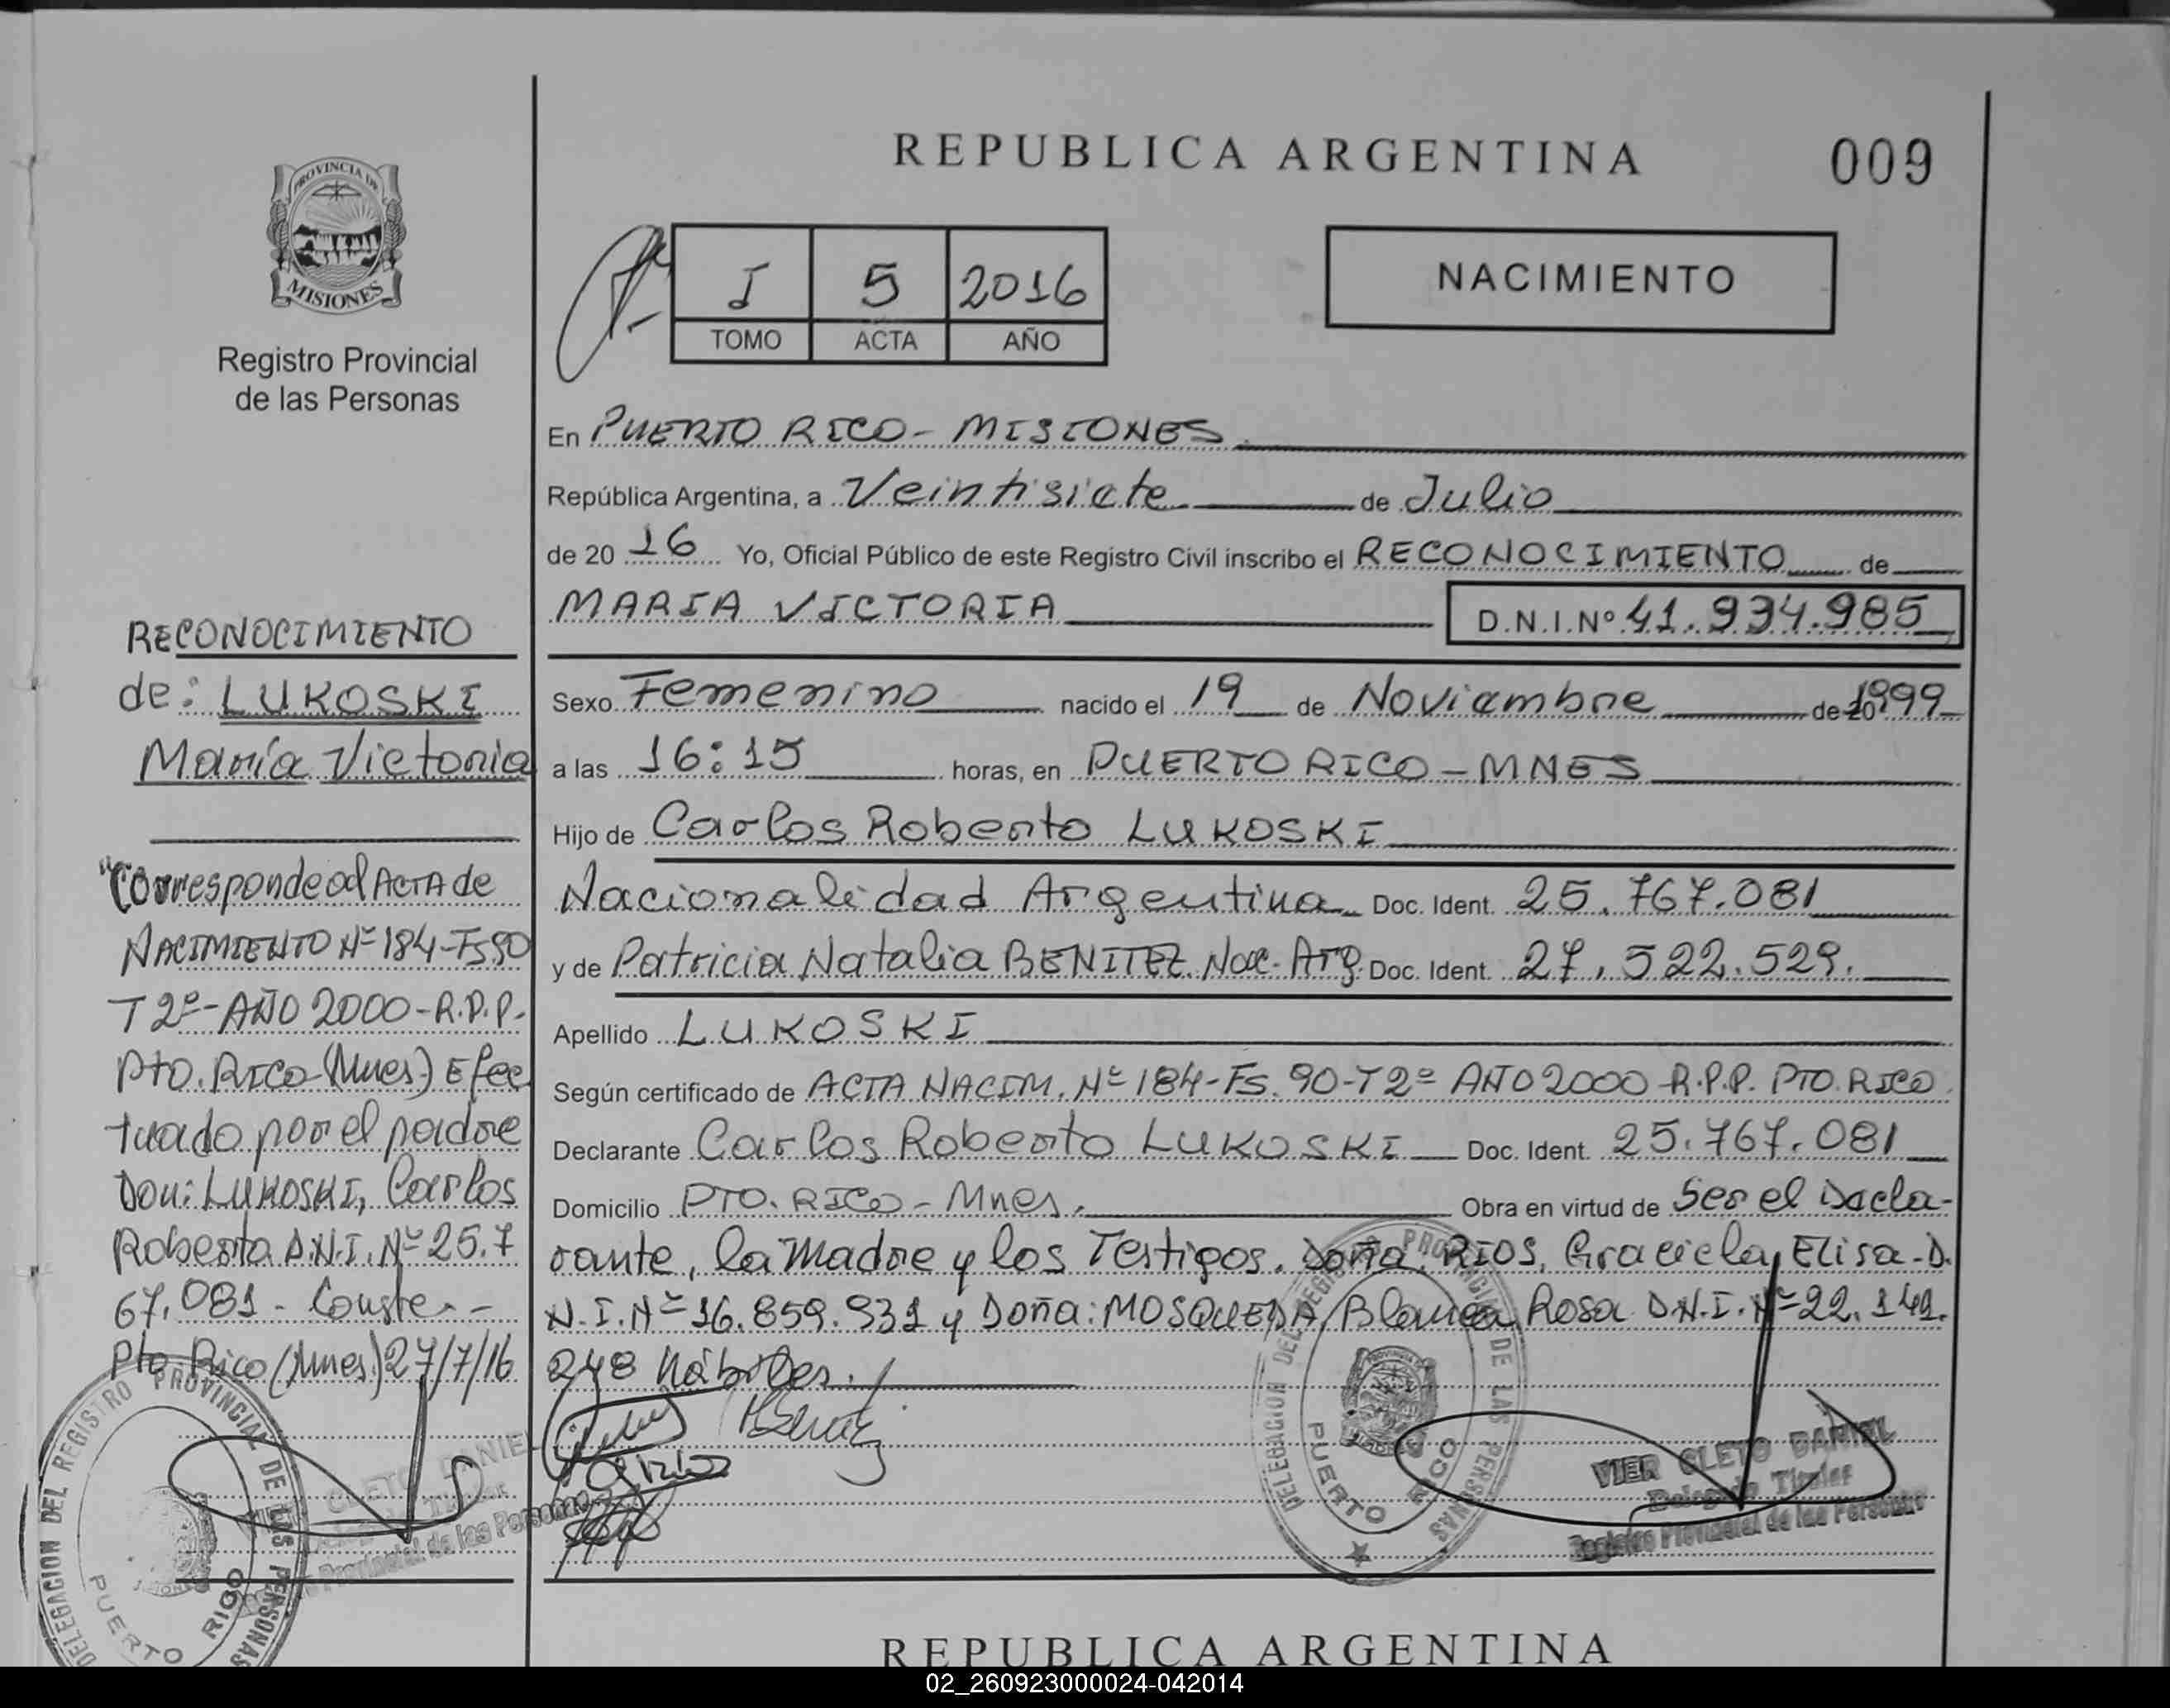 REPUBLICA ARGENTINA
009
PROVINCIA DE
MISIONES
Registro Provincial
de las Personas
I 5 2016
TOMO ACTA AÑO
NACIMIENTO
RECONOCIMIENTO
de: LUKOSKI
María Victoria
"Corresponde al ACTA de
NACIMIENTO Nº 184-Fs.90
T 2º-AÑO 2000-R.P.P.
Pto. RICO-(Mnes.) Efec
tuado por el padre
Don: LUKOSKI, Carlos
Roberto D.N.I. Nº 25.7
67.081 - Conste.-
Pto. Rico (Mnes.) 27/7/16
En PUERTO RICO - MISIONES
República Argentina, a Veintisiete de Julio
de 20 16 Yo, Oficial Público de este Registro Civil inscribo el RECONOCIMIENTO de
MARIA VICTORIA D.N.I.Nº 41.934.985
Sexo Femenino nacido el 19 de Noviembre de 20 1999
a las 16:15 horas, en PUERTO RICO - MNES
Hijo de Carlos Roberto LUKOSKI
Nacionalidad Argentina Doc. Ident. 25.767.081
y de Patricia Natalia BENITEZ Nac. Arg. Doc. Ident. 27.522.529.
Apellido LUKOSKI
Según certificado de ACTA NACIM. Nº 184-Fs. 90-T 2º AÑO 2000-R.P.P. PTO. RICO
Declarante Carlos Roberto LUKOSKI Doc. Ident. 25.767.081
Domicilio PTO. RICO - Mnes. Obra en virtud de Ser el Decla-
rante, la Madre y los Testigos. Doña: RIOS, Graciela Elisa - D.
N.I. Nº 16.859.931 y Doña: MOSQUEDA, Blanca Rosa D.N.I. Nº 22.149.
248 Hábiles.
DELEGACION DEL REGISTRO PROVINCIAL DE LAS PERSONAS
PUERTO RICO
CLETO DANIEL
Provincial de las Personas
DELEGACION DEL REGISTRO PROVINCIAL DE LAS PERSONAS
PUERTO RICO
VIER CLETO DANIEL
Delegado Titular
Registro Provincial de las Personas
REPUBLICA ARGENTINA
02_260923000024-042014